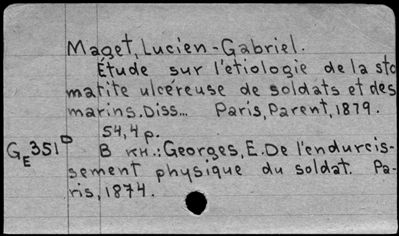 Maget, Lucien-Gabriel.
Étude sur l'étiologie de la sto
matite ulcéreuse de soldats et des
marins. Diss... Paris, Parent, 1879.
54,4 p.
GE351D В кн.: Georges, E. De l'endurcis-
sement physique du soldat. Pa-
ris, 1874.